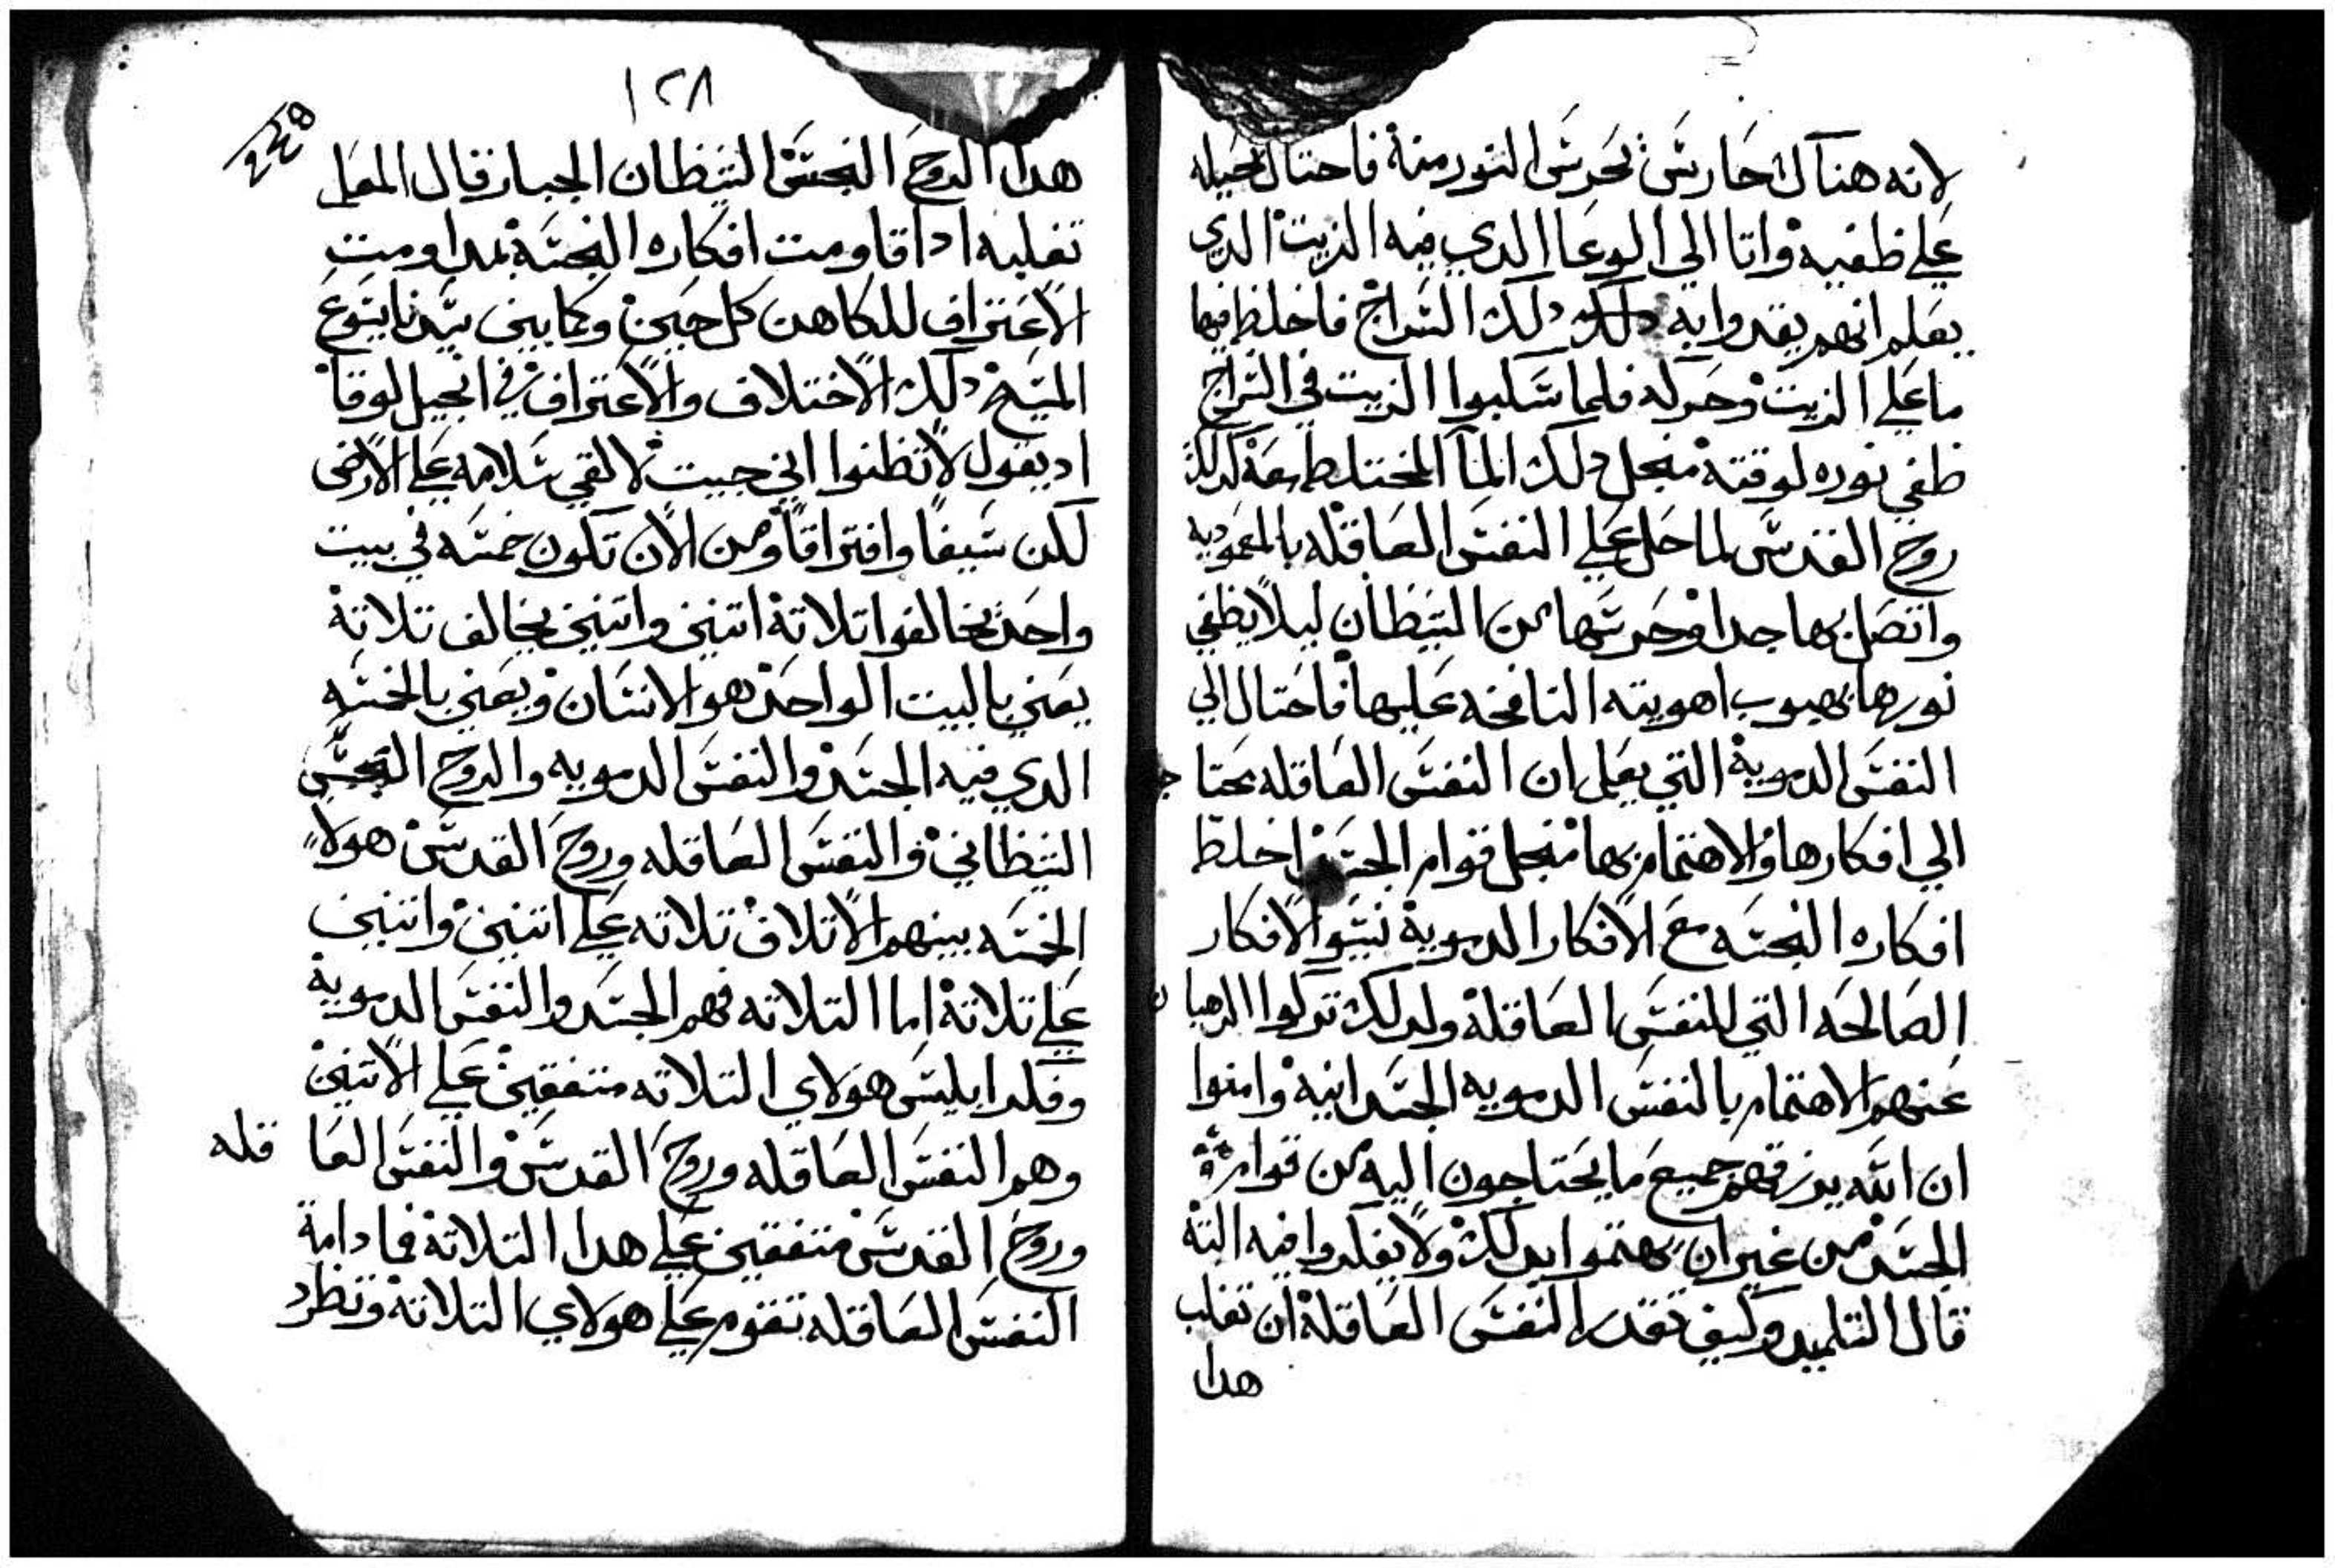 لانه هناك حارس يحرس النور منة فاحتال بحيله
علي طفيه واتا الي الوعا الدي فيه الزيت الدي
يعلم انهم يقدوا به دلك دلك السراج فاخلط فيها
ما علي الزيت وحركه فلما سكبوا الزيت في السراج
طفي نوره لوقتة منجل دلك الما المختلط معة كدلك
روح القدس لما حل علي النفس العاقله بالمعموديه
واتصل بها جدا وحرسها من الشيطان ليلا يطفي
نورها بهبوب اهويته النافخه عليها فاحتال الي
النفس الدموية التي يعلم ان النفس العاقله تحتاج
الي افكارها والاهتمام بها منجل قوام الجسد اخلط
افكاره النجسه مع الافكار الدموية نسيوا الافكار
الصالحه التي للنفس العاقلة ولدلك تركوا الرهبان
عنهم الاهتمام بالنفس الدمويه الجسدانية وامنوا
ان الله يرزقهم جميع ما يحتاجون اليه من قوام
الجسد من غير ان يهتموا بدلك ولا يفكروا فيه البتة
قال التلميد وكيف تقدر النفس العاقلة ان تغلب
هدا
١٢٨
228
هدا الروح النجس الشيطان الجبار قال المعلم
تغلبه ادا قاومت افكاره النجسة بمداومت
الاعتراف للكاهن كل حين وكما بين سيدنا يسوع
المسيح دلك الاختلاف والاعتراف في انجيل لوقا
اد يقول لا تظنوا اني جيت لالقي سلامه علي الارض
لكن سيفا وافتراقا ومن الان تكون خمسه في بيت
واحد يخالفوا تلاتة اتنين واتنين يخالف تلاتة
يعني بالبيت الواحد هو الانسان ويعني بالخمسه
الدي فيه الجسد والنفس الدمويه والروح النجس
الشيطاني والنفس العاقله وروح القدس هولا
الخمسه بينهم الاتلاف تلاته علي اتنين واتنين
علي تلاتة اما التلاته فهم الجسد والنفس الدموية
وفكر ابليس هولاي التلاته متفقين علي الاتنين
وهم النفس العاقله وروح القدس والنفس العاقله
وروح القدس متفقين علي هدا التلاتة فما دامة
النفس العاقله تقوم علي هولاي التلاتة وتطرد